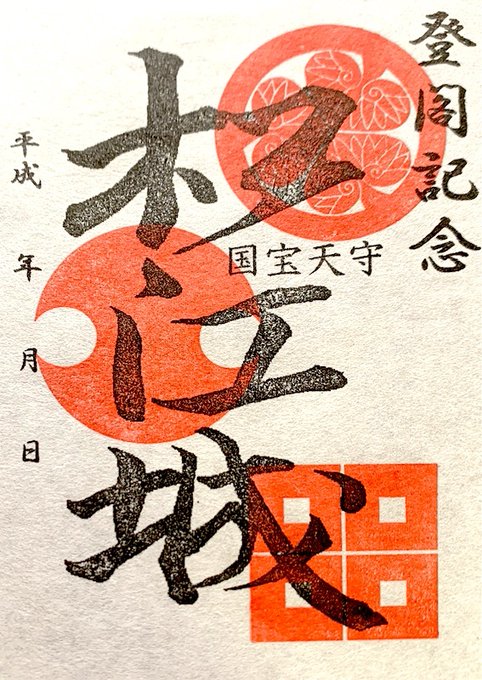 登閣記念
国宝天守
松江城
平成 年 月 日